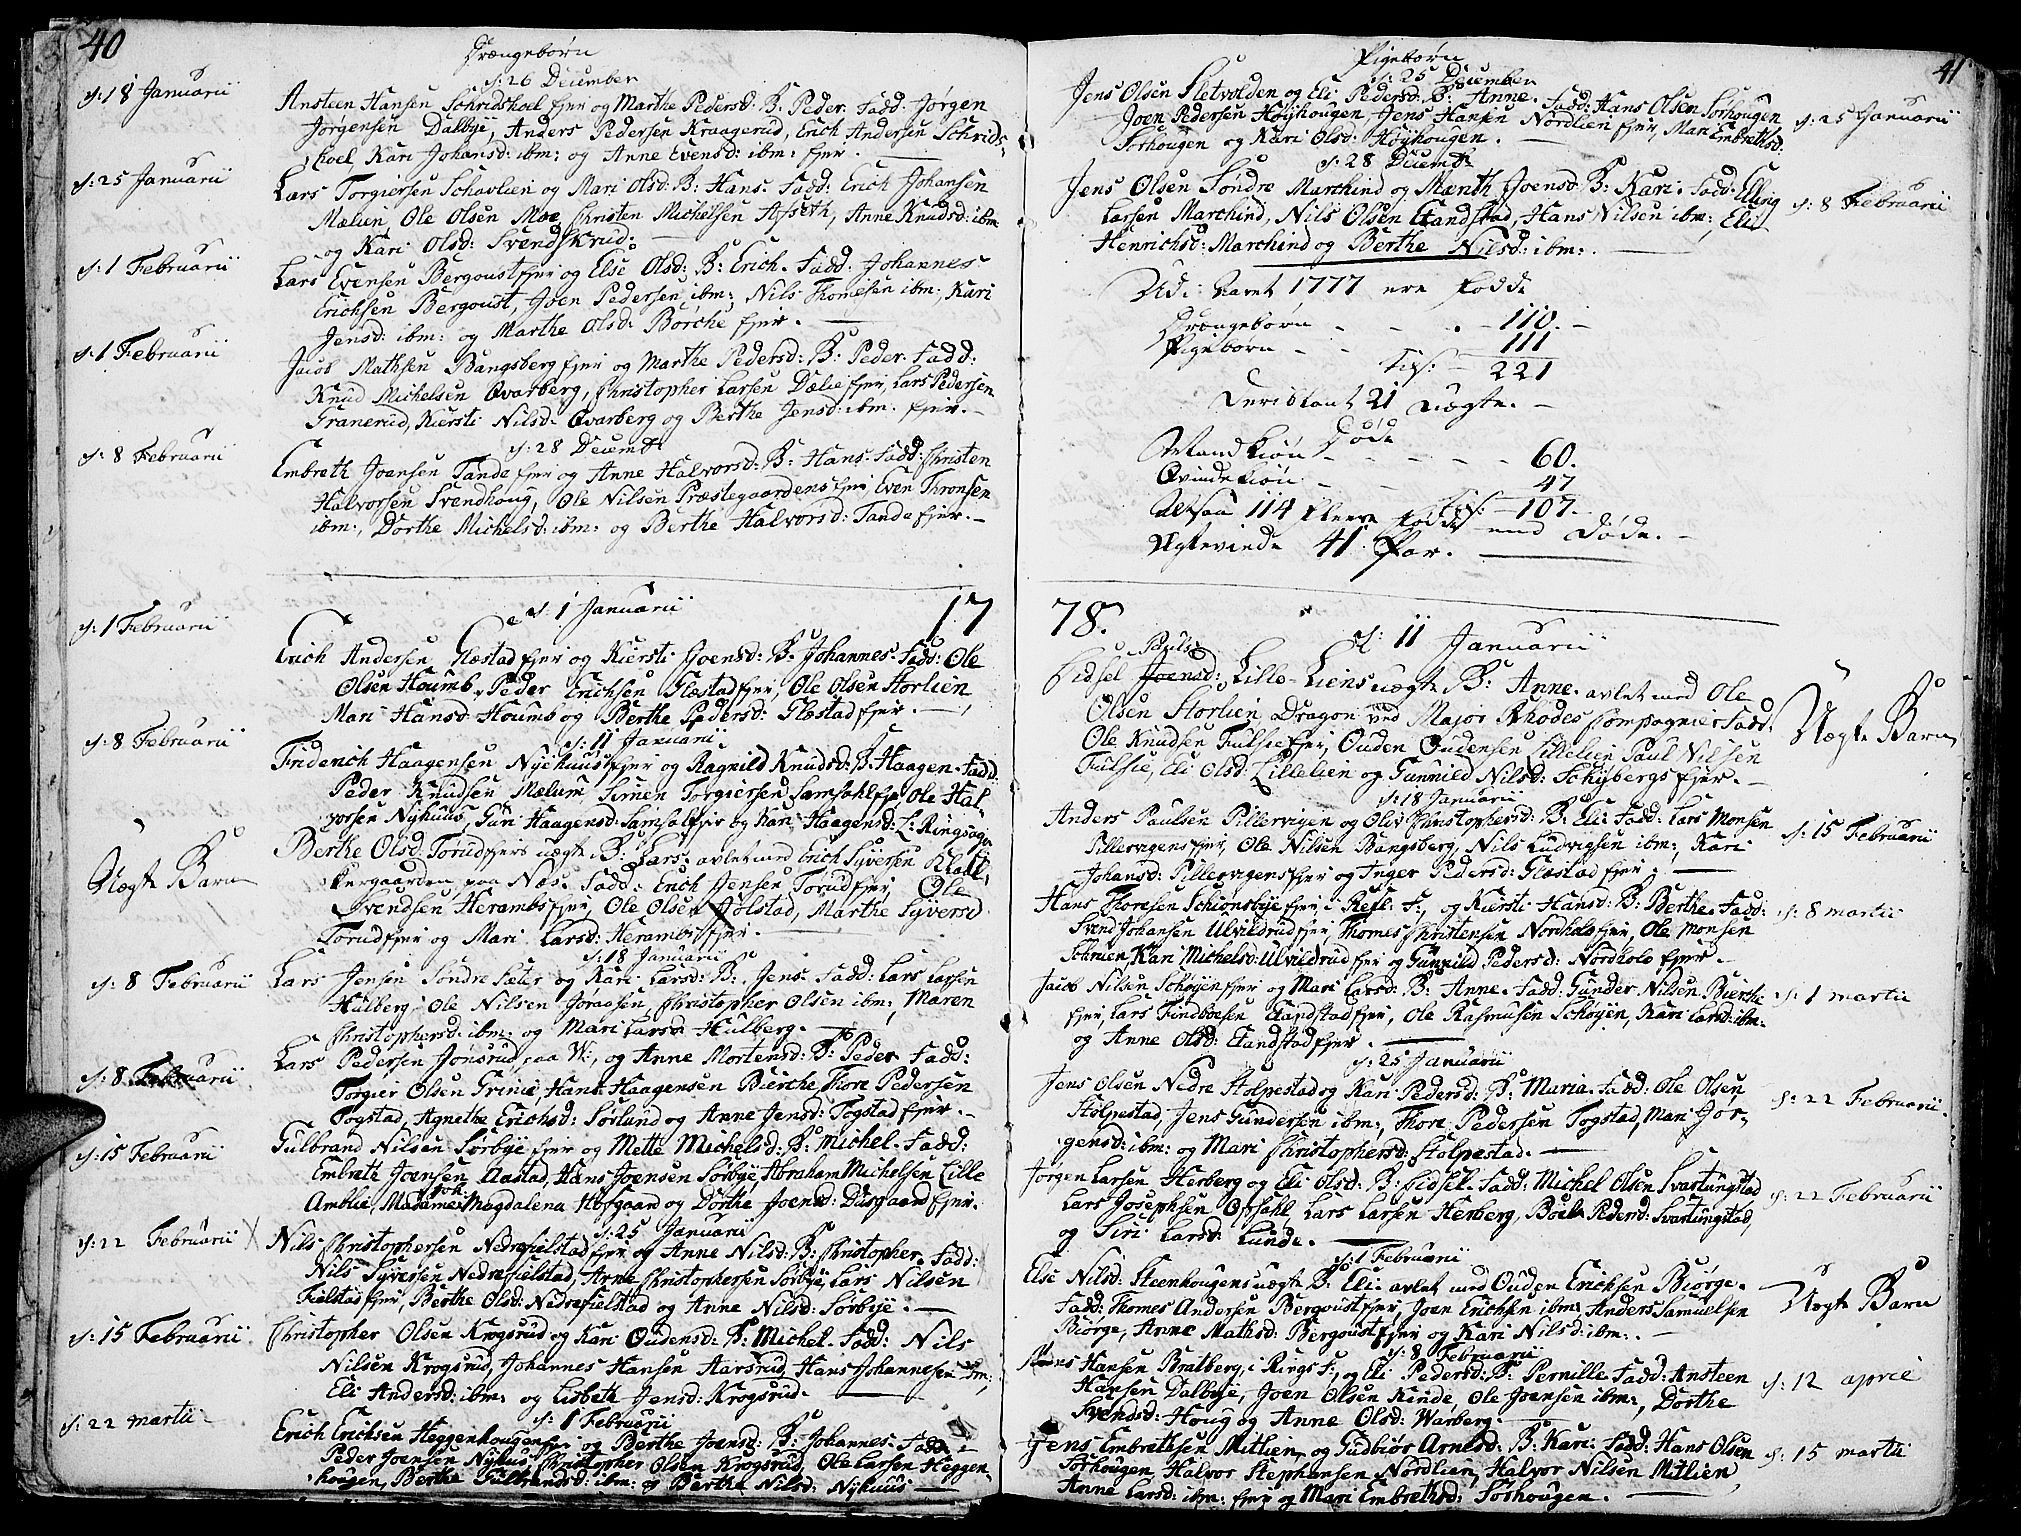 40
Drængebørn
d: 26 December
d: 18 Januarii
Ansteen Hansen Schridshoel fjer og Marthe Pedersd: B: Peder. Fadd: Jørgen
Jørgensen Dalbye, Anders Pedersen Kraagerud, Erich Andersen Schrids-
hoel Kari Johansd: ibm: og Anne Evensd: ibm: fjer.
d: 25 Januarii
Lars Torgiersen Schavlien og Mari Olsd: B: Hans. Fadd: Erich Johansen
Mælun, Ole Olsen Moe, Christen Michelsen Afseth, Anne Knudsd: ibm
og Kari Olsd: Svendskrud.
d: 1 Februarii
Lars Evensen Bergoust fjer og Else Olsd: B: Erich. Fadd: Johannes
Erichsen Bergoust, Joen Pedersen ibm: Nils Thomesen ibm: Kari
Jensd: ibm: og Marthe Olsd: Børche fjer.
d: 1 Februarii
Jacob Mathsen Bangsberg fjer og Marthe Pedersd: B: Peder. Fadd:
Knud Michelsen Qvarberg, Christopher Larsen Dælie fjer, Lars Pedersen
Granerud, Kiersti Nilsd: Qvarberg og Berthe Jensd: ibm. fjer.
d: 28 Decemb
d: 8 Februarii
Embreth Joensen Tande fjer og Anne Halvorsd: B: Hans. Fadd: Christen
Halvorsen Svendhoug, Ole Nilsen Præstegaardens fjer, Even Thronsen
ibm:, Dorthe Michelsd: ibm: og Berthe Halvorsd: Tande fjer.
d: 1 Januarii 17
d: 1 Februarii
Erich Andersen Glæstad fjer og Kiersti Joensd: B: Johannes. Fadd: Ole
Olsen Houmb, Peder Erichsen Glæstad fjer, Ole Olsen Storlien
Mari Hansd: Houmb og Berthe Pedersd: Glæstad fjer.
d: 11 Januarii
d: 8 Februarii
Friderich Haagensen Nyehuus fjer og Ragnild Knudsd: B: Haagen. Fadd:
Peder Knudsen Mælum, Simen Torgiersen Samsahl fje, Ole Hal-
vorsen Nyhuus, Guri Haagensd: Samsal fjer og Kari Haagensd: L: Ringsage
Uægte Barn
Berthe Olsd: Torud fjers uægte B: Lars. avlet med Erich Syversen Klok-
kergaarden paa Næs. Fadd: Erich Jensen Torud fjer, Ole
Svendsen Herambs fjer, Ole Olsen Jølstad, Marthe Syversd:
Torud fjer og Mari Larsd: Herambs fjer.
d: 18 Januarii
d: 8 Februarii
Lars Jensen Søndre Sæter og Kari Larsd: B: Jens. Fadd: Lars Larsen
Hulberg, Ole Nilsen Joraasen, Christopher Olsen ibm:, Maren
Christophersd: ibm: og Mari Larsd: Hulberg.
d: 8 Februarii
Lars Pedersen Jonsrud paa W:, og Anne Mortensd: B: Peder. Fadd:
Torgier Olsen Grinie, Hans Haagensen Bierche, Thore Pedersen
Togstad, Agnethe Erichsd: Sørlund og Anne Jensd: Togstad fjer.
d: 15 Februarii
Gulbrand Nilsen Sørbye fjer og Mette Michelsd: B: Michel. Fadd:
Embreth Joensen Aastad, Hans Joensen Sørbye, Abraham Michelsen Lille
Amblie, Madame Magdalena Hofgaard og Dorthe Joensd: Disgaard fjer.
d: 25 Januarii
d: 22 Februarii
Nils Christophersen Nedrefielstad fjer og Anne Nilsd: B: Christopher. Fadd:
Nils Syversen Nedrefielstad, Arne Christophersen Sørbye, Lars Nilsen
Fielstad fjer, Berthe Olsd: Nedrefielstad og Anne Nilsd: Sørbye.
d: 15 Februarii
Christopher Olsen Krogsrud og Kari Oudensd: B: Michel. Fadd: Nils
Nilsen Krogsrud, Johannes Hansen Aarsrud, Hans Johannesen ibm:
Eli Andersd: ibm: og Lisbeth Jensd: Krogsrud.
d: 1 Februarii
d: 22 martii
Erich Erichsen Heggenhougen fjer og Berthe Joensd: B: Johannes. Fadd:
Peder Joensen Nyhus, Christopher Olsen Krogsrud, Ole Larsen Heggen-
hougen, Berthe Gulbrandsd: ibm: og Berthe Nilsd: Nyhuus
41
Pigebørn
d: 25 December
Jens Olsen Sletvolden og Eli Pedersd: B: Anne. Fadd: Hans Olsen Sørhougen
d: 25 Januarii
Joen Pedersen Høyhougen, Jens Hansen Nordlien fjer, Mari Embrethsd:
Sørhougen og Kari Olsd: Høyhougen.
d: 28 Decemb
Jens Olsen Søndre Marchind og Marith Joensd: B: Kari. Fadd: Elling
d: 8 Februarii
Larsen Marchind, Nils Olsen Tandstad, Hans Nilsen ibm:, Eli
Henrichsd: Marchind og Berthe Nilsd: ibm:
Udi Aaret 1777 ere fødde
Drængebørn 110.
Pigebørn 111
221
Deriblant 21 Uægte.
Døde
Mandkiøn 60.
Qvindekiøn 47
107.
Altsaa 114 fleere fødde end døde.
Egteviede 41 Par.
78.
d: 11 Januarii
Pauls
Sidsel Joensd: Lille-Liens uægte B: Anne. avlet med Ole
Uægte Barn
Olsen Storlien Dragon ved Major Rhodes Compagnie. Fadd:
Ole Knudsen Fulsie fjer, Ouden Oudensen Lillelien Paul Nilsen
Fulsie, Eli Olsd: Lillelien og Gunnild Nilsd: Schybergs fjer.
d: 18 Januarii
Anders Paulsen Pillervigen og Olev Christophersd: B: Eli. Fadd: Lars Monsen
d: 15 Februarii
Pillervigens fjer, Ole Nilsen Bangsberg, Nils Ludvigsen ibm:, Kari
Johansd: Pillervigens fjer og Inger Pedersd: Glæstad fjer.
Hans Thoresen Schionsbye fjer i Refl: F:, og Kiersti Hansd: B: Berthe. Fadd:
d: 8 martii
Svend Johansen Ulvildrud fjer, Thomes Christensen Nordholo fjer, Ole Monsen
Schruen, Kari Michelsd: Ulvildrud fjer og Gunnild Pedersd: Nordholo fjer.
Jacob Nilsen Schøyen fjer og Mari Larsd: B: Anne. Fadd: Gunder Nilsen Bierche
d: 1 martii
fjer, Lars Findboesen Tandstad fjer, Ole Rasmusen Schøyen, Kari Larsd: ibm:
og Anne Olsd: Tandstad fjer.
d: 25 Januarii
Jens Olsen Nedre Stolpestad og Kari Pedersd: B: Maria. Fadd: Ole Olsen
d: 22 Februarii.
Stolpestad, Jens Gundersen ibm:, Thore Pedersen Togstad, Mari Jør-
gensd: ibm: og Mari Christophersd: Stolpestad.
Jørgen Larsen Herberg og Eli Olsd: B: Sidsel. Fadd: Michel Olsen Svartungstad
d: 22 Februarii
Lars Josephsen Opsahl, Lars Larsen Herberg, Boel Pedersd: Svartungstad,
og Siri Larsd: Lunde.
d: 1 Februarii
Else Nilsd: Steenhougens uægte B: Eli. avlet med Ouden Ericksen Biørge.
Uægte Barn
Fadd: Thomes Andersen Bergoust fjer, Joen Erichsen ibm: Anders Samuelsen
Biørge, Anne Mathsd: Bergoust fjer og Kari Nilsd: ibm:.
d: 8 Februarii
Hansen Bratberg, i Rings F:, og Eli Pedersd: B: Pernille. Fadd: Ansteen
d: 12 april
Hansen Dalbye, Joen Olsen Kinde, Ole Joensen ibm:, Dorthe
Svendsd: Houg og Anne Olsd: Warberg.
Jens Embrethsen Mitlien, og Gudbiør Arnesd: B: Kari. Fadd: Hans Olsen
d: 15 martii
Sørhougen, Halvor Stephansen Nordlien, Halvor Nilsen Mitlien
Anne Larsd: ibm: fjer og Mari Embrethsd: Sørhougen.